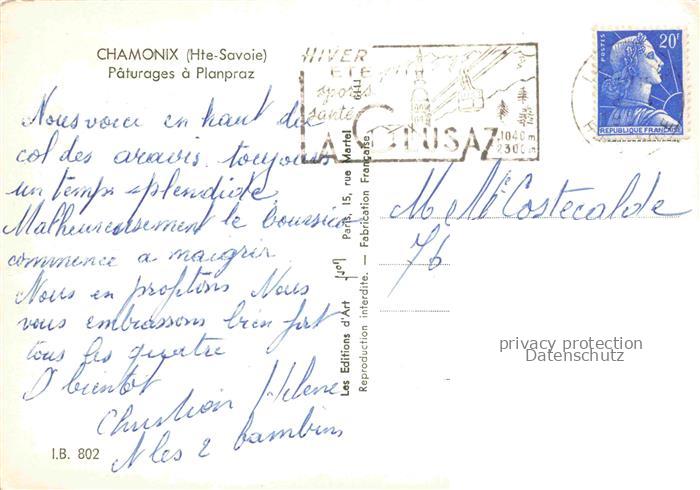 CHAMONIX (Hte-Savoie)
Pâturages à Planpraz
Nous voici en haut du
col des aravis toujours
un temps splendide
Malheureusement le boursico
commence a maigrir
Nous en profitons Nous
vous embrassons bien fort
tous les quatre
A bientot
Christian Helene
les 2 bambins
I.B. 802
Les Editions d'Art Paris, 15, rue Martel
Reproduction interdite. — Fabrication Française
HIVER
ÉTÉ
sports
santé
LA CLUSAZ
1040 m
2300 m
POSTES
20F
REPUBLIQUE FRANÇAISE
M et Me Costecalde
76
privacy protection
Datenschutz